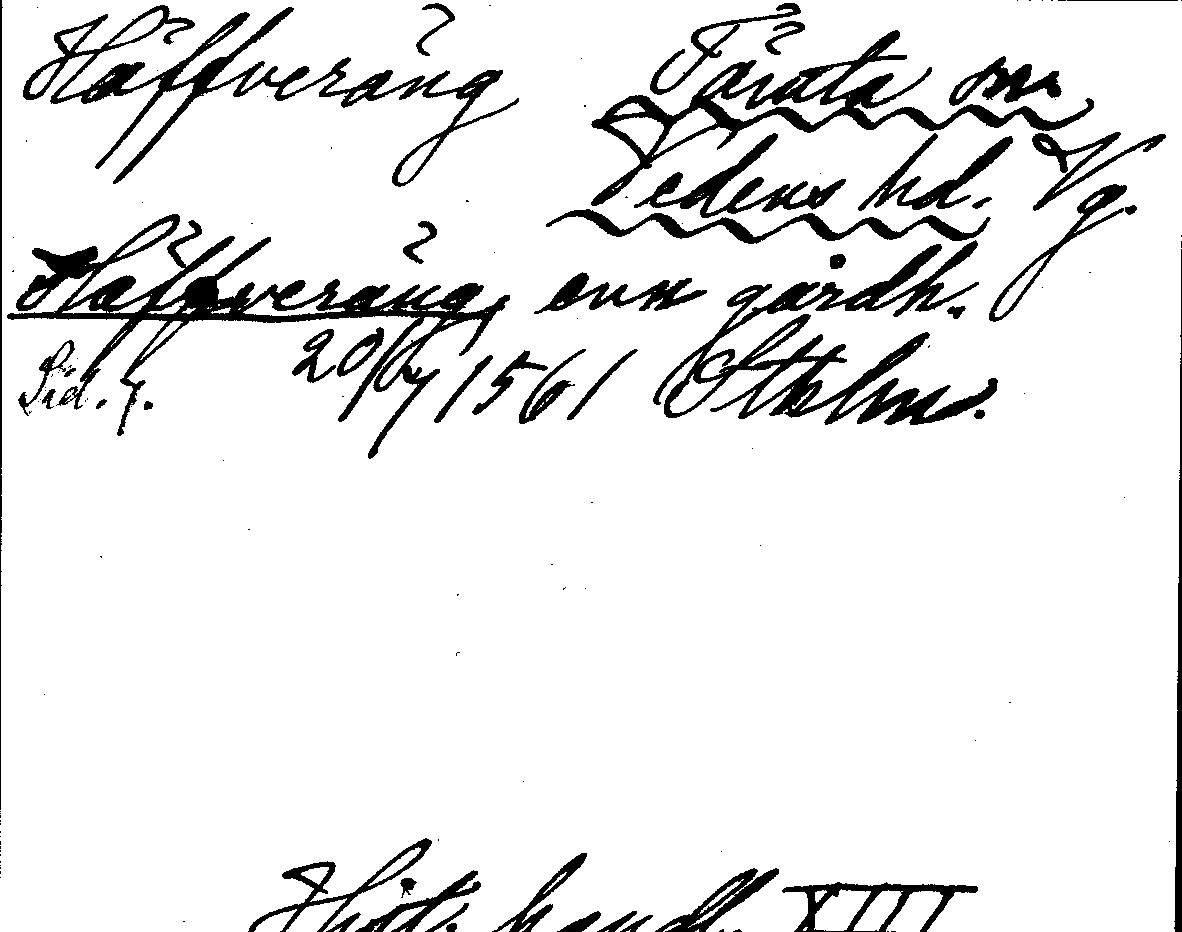 Häffveräng Täråta sn.
Vedens hd. Vg.
Häffveräng, enn gårdh.
Sid. 7. 20/7 1561 Sthlm.
Hist. handl. XIII